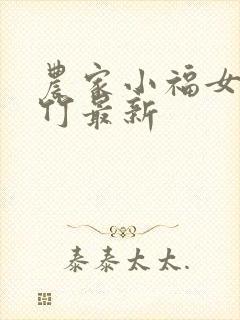 農家小福女
竹最新
泰泰太太.